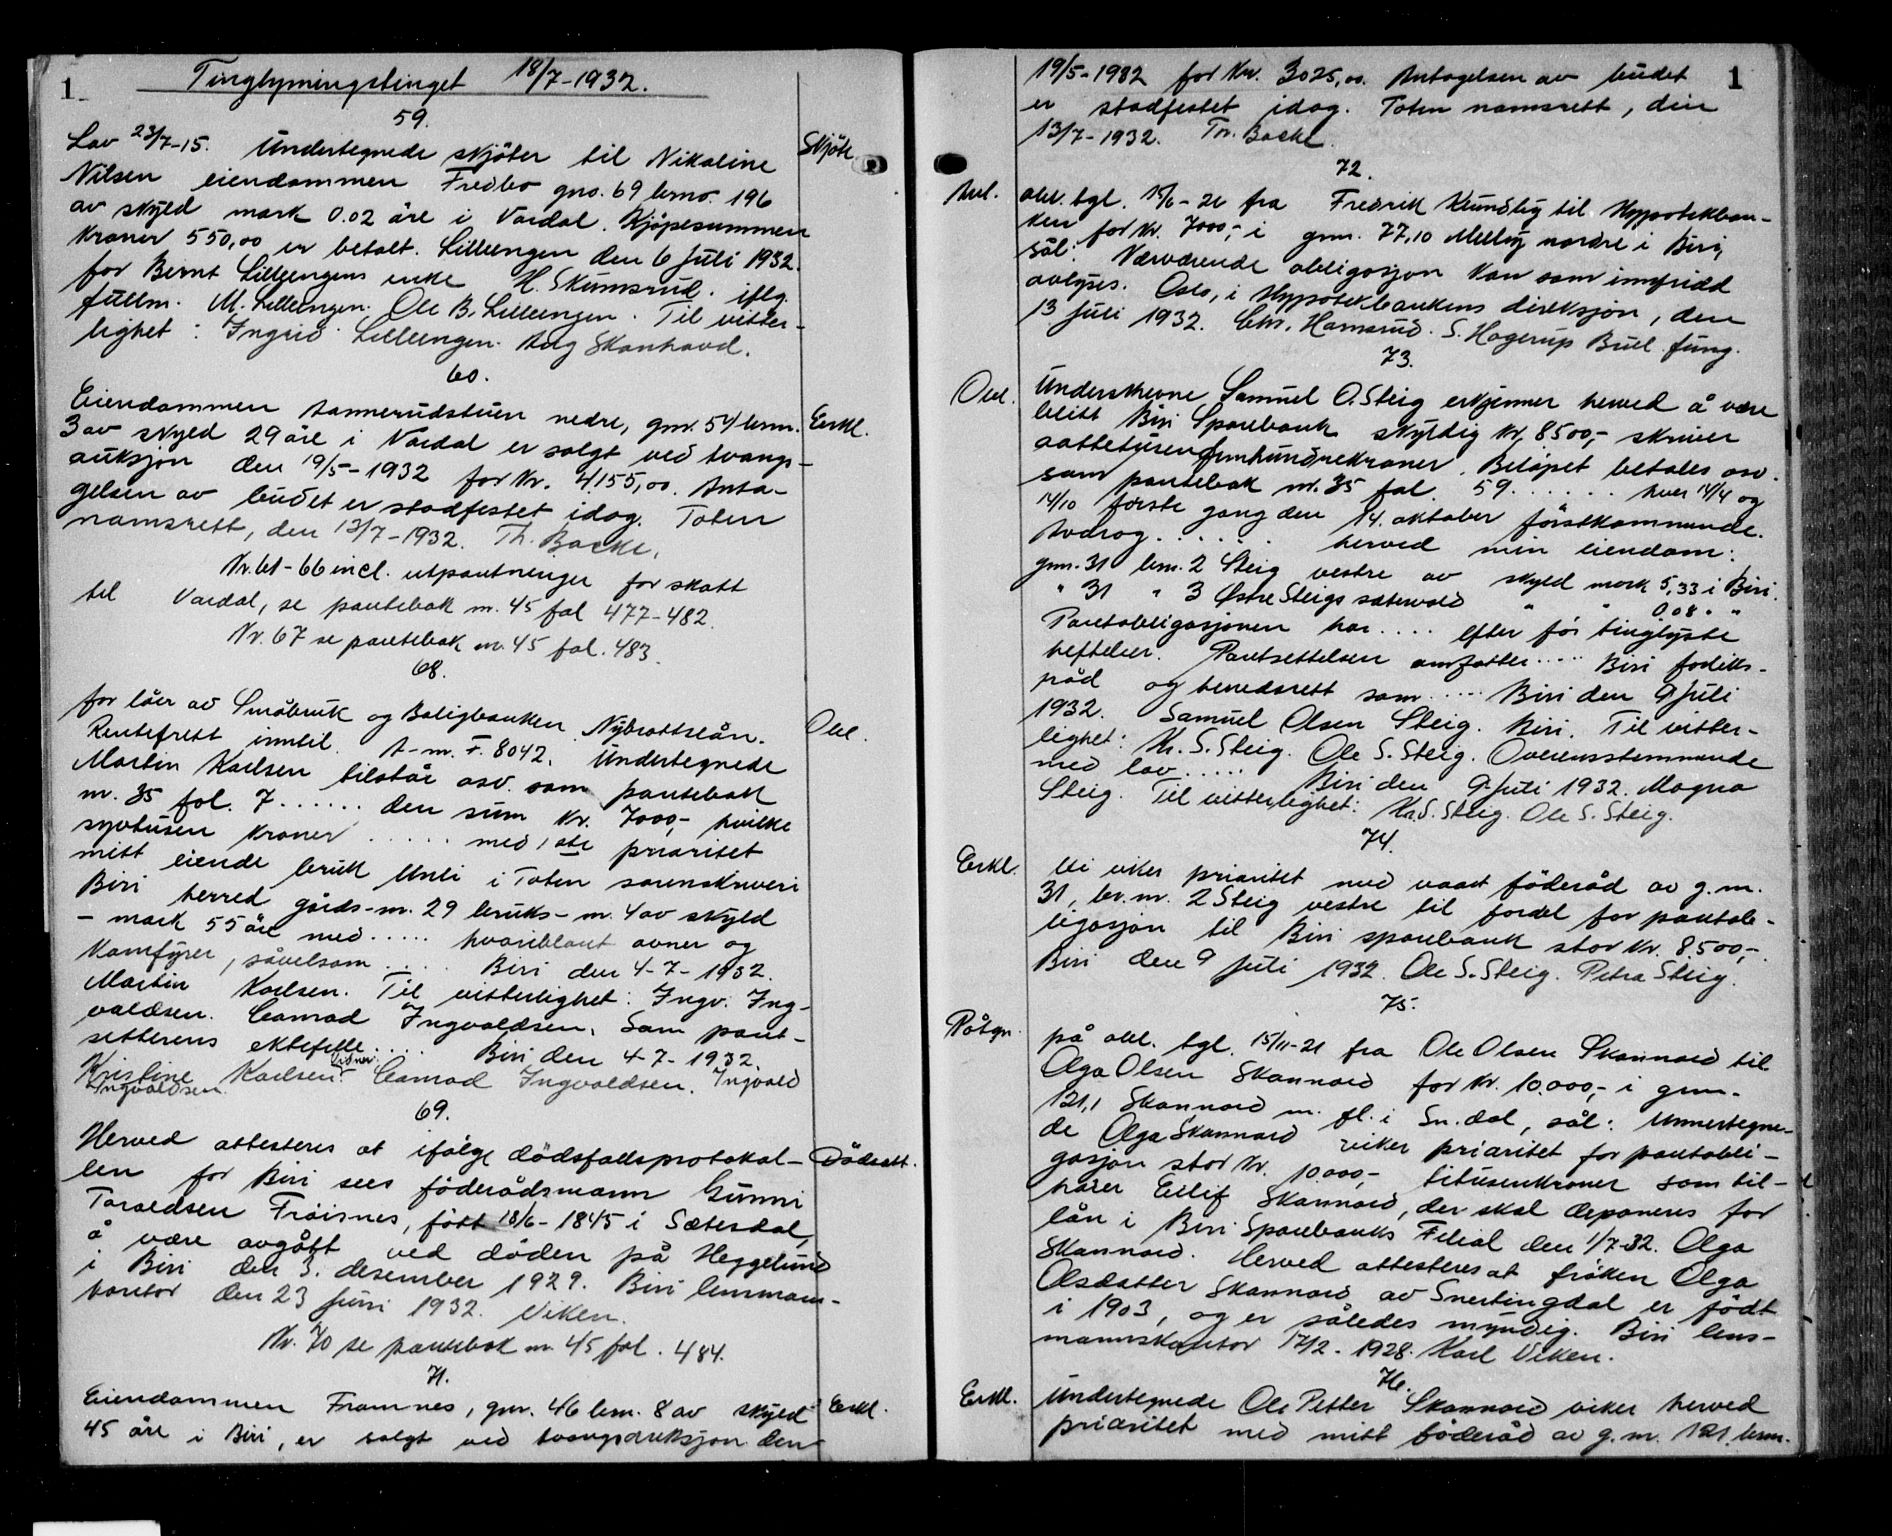 1
Tinglysningstinget 18/7-1932.
59.
Lov 23/7-15. Undertegnede skjöter til Nikoline
Skjöte
Nilsen eiendommen Fredbo gno. 69 brno. 196
av skyld mark 0.02 öre i Vardal. Kjöpesummen
kroner 550,00 er betalt. Lilleengen den 6 juli 1932.
for Bernt Lilleengens enke H. Skumsrud. iflg.
fullm. M. Lilleengen. Ole B. Lilleengen. Til vitter-
lighet: Ingrid Lilleengen. Aug Skonhovd.
60.
Eiendommen nedre, gnr. 54 brnr.
Erkl.
3 av skyld 29 öre i Vardal er solgt ved tvangs-
auksjon den 19/5-1932 for kr. 4155,00. Anta-
gelsen av budet er stadfestet idag. Toten
namsrett, den 13/7-1932. Th. Backe.
Nr. 61-66 incl. utpantninger for skatt
til Vardal, se pantebok nr. 45 fol 477-482.
Nr. 67 se pantebok nr. 45 fol. 483.
68.
for lån av Småbruk og Boligbanken Nybrottslån.
Obl.
Rentefritt inntil. A-nr. F. 8042. Undertegnede
Martin Karlsen tilstår osv. som pantebok
nr. 35 fol. 7...... den sum kr. 7000,- hvilke
syvtusen kroner ..... med 1ste prioritet
mitt eiende bruk Unli i Toten sorenskriveri
Biri herred gårds-nr. 29 bruks-nr. 4 av skyld
- mark 55 öre med ..... hvoriblant ovner og
komfyrer, såvelsom .... Biri den 4-7-1932.
Martin Karlsen. Til vitterlighet: Ingv. Ing-
valdsen. Conrad Ingvaldsen. Som pant-
setterens ektefelle .... Biri den 4-7-1932.
Kristine Karlsen. Vitner: Conrad Ingvaldsen. Ingvald
Ingvaldsen.
69.
Herved attesteres at ifölge dödsfallsprotokol-
Dödsatt.
len for Biri sees föderådsmann Gunni
Taraldsen Fröisnes, född 18/6-1845 i Sætersdal,
å være avgått ved döden på Heggelund
i Biri den 3. desember 1929. Biri lensmans-
kontor den 23 juni 1932. Viken.
Nr. 70 se pantebok nr. 45 fol. 484.
71.
Eiendommen Framnes, gnr. 46 brnr. 8 av skyld
Erkl.
45 öre i Biri, er solgt ved tvangsauksjon den
1
19/5-1932 for kr. 3025,00. Antagelsen av budet
er stadfestet idag. Toten namsrett, den
13/7-1932. Th. Backe.
72.
Avl.
obl. tgl. fra Fredrik til Hypotekban-
ken for kr. 7000,- i gnr. 77,10 Melby nordre i Biri,
sål: Nærværende obligasjon kan som innfridd
avlyses. Oslo, i Hypotekbankens direksjon, den
13 juli 1932. Chr. Hamsund. S. Hagerup Bull fung.
73.
Obl.
Underskrevne Samuel O. Steig erkjenner herved å være
blitt Biri Sparebank skyldig kr. 8500,- skriver
aattetusenfemhundrekroner. Belöpet betales osv.
som pantebok nr. 35 fol. 59...... hver 14/4 og
14/10 förste gang den 14. oktober förstkommende.
Avdrag...... herved min eiendom:
gnr. 31 brnr. 2 Steig vestre av skyld mark 5,33 i Biri.
" 31 " 3 Østre Steigsætervold " " 0.08 " "
Pantobligasjonen har .... efter för tinglyste
heftelser. Pantsettelsen omfatter ..... Biri forliks-
råd og herredsrett som ..... Biri den 9 juli
1932. Samuel Olsen Steig. Biri. Til vitter-
lighet: Kr. S. Steig. Ole S. Steig. Overensstemmende
med lov ..... Biri den 9 juli 1932. Magna
Steig. Til vitterlighet: Kr. S. Steig. Ole S. Steig.
74.
Erkl.
Vi viker prioritet med vaart föderåd av g.nr.
31, br.nr. 2 Steig vestre til fordel for pantob-
ligasjon til Biri sparebank stor kr. 8.500,-
Biri den 9 juli 1932. Ole S. Steig. Petra Steig.
75.
Påtgn.
på obl. tgl. 15/11-21 fra Ole Olsen Skonnord til
Olga Olsen Skonnord for kr. 10.000,- i gnr.
121,1 Skonnord m. fl. i Sn.dal, sål: Unnertegne-
de Olga Skonnord viker prioritet for pantobli-
gasjon stor kr. 10000,- titusenkroner som til-
hører Eilif Skonnord, der skal deponeres for
lån i Biri Sparebanks Filial den 1/7-32. Olga
Skonnord. Herved attesteres at fröken Olga
Olsdatter Skonnord av Snertingdal er född
i 1903, og er således myndig. Biri lens-
mannskontor 17/2-1928. Karl Viken.
76.
Erkl.
Undertegnede Ole Petter Skonnord viker herved
prioritet med mitt föderåd av g.nr. 121. brnr.